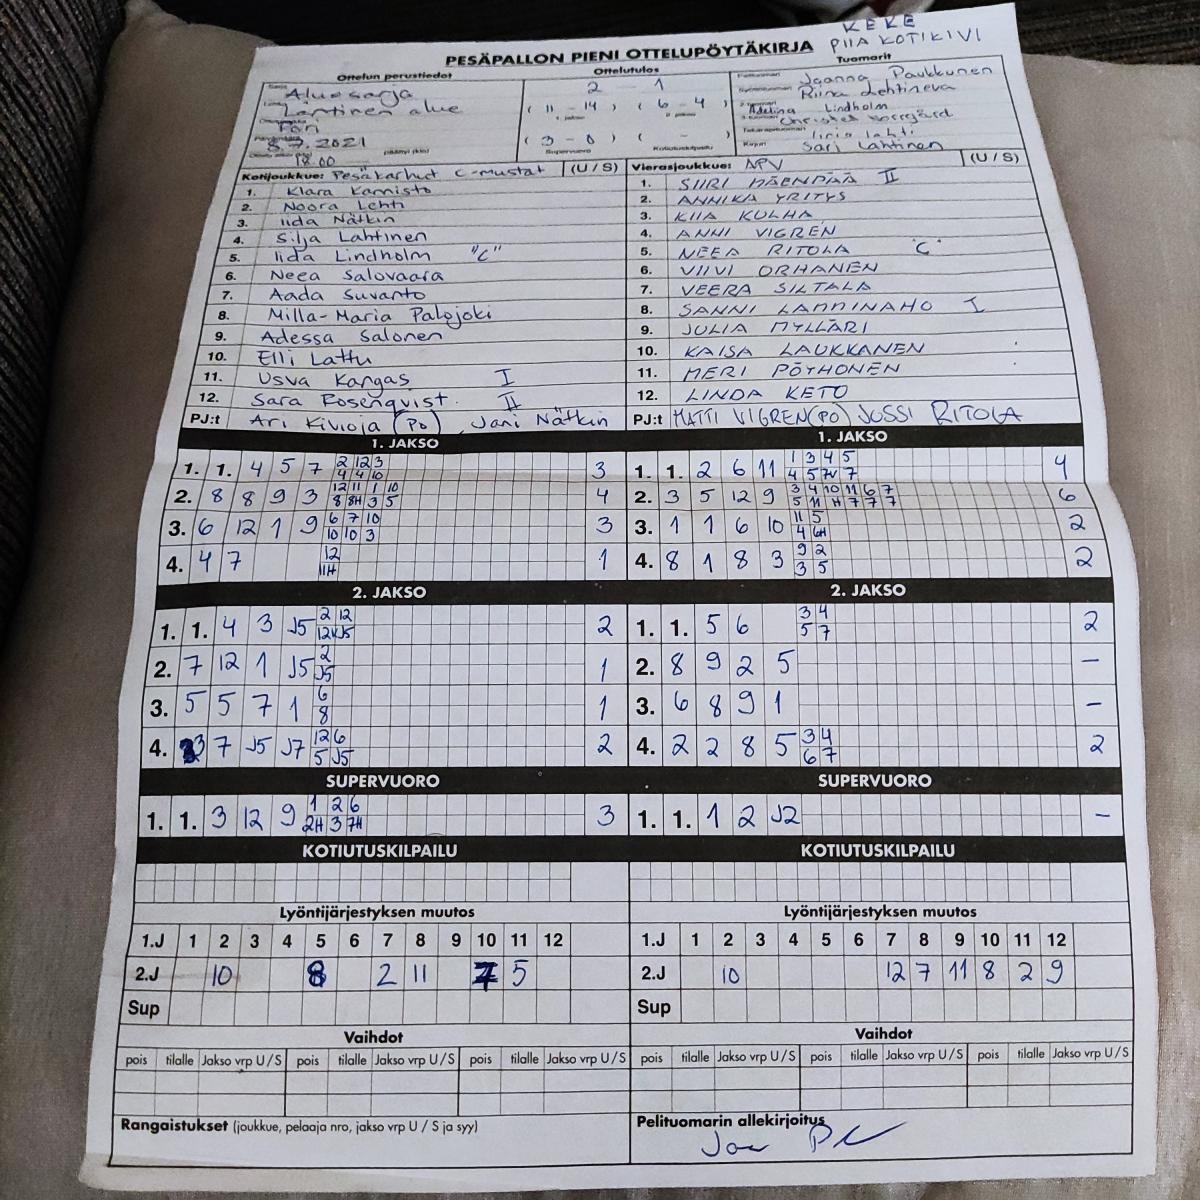 KEKE
PIIA KOTIKIVI
PESÄPALLON PIENI OTTELUPÖYTÄKIRJA
Ottelun perustiedot
Ottelutulos
Tuomarit
Aluesarja
Läntinen alue
Pori
8.7.2021
18.00
2 - 1
( 11 - 14 ) ( 6 - 4 )
1. jakso 2. jakso
( 3 - 0 ) ( - )
Supervuoro Kotiutuskilpailu
Joanna Paukkunen
Riina Lehtineva
Adelina Lindholm
Christel
Iiris Lahti
Sari Lahtinen
Kotijoukkue: Pesäkarhut C-mustat (U / S)
1. Klara Kannisto
2. Noora Lehti
3. Iida Nätkin
4. Silja Lahtinen
5. Iida Lindholm "C"
6. Neea Salovaara
7. Aada Suvanto
8. Milla-Maria Palojoki
9. Adessa Salonen
10. Elli Lattu
11. Usva Kangas I
12. Sara Rosenqvist II
PJ:t Ari Kivioja (PO), Jani Nätkin
Vierasjoukkue: NPV (U / S)
1. SIIRI MÄENPÄÄ II
2. ANNIKA YRITYS
3. KIIA KULHA
4. ANNI VIGREN
5. NEEA RITOLA "C"
6. VIIVI ORHANEN
7. VEERA SILTALA
8. SANNI LAMMINAHO I
9. JULIA MYLLÄRI
10. KAISA LAUKKANEN
11. MERI PÖYHÖNEN
12. LINDA KETO
PJ:t MATTI VIGREN (PO) JUSSI RITOLA
1. JAKSO
1. 1. 4 5 7 2 12 3 3
4 4 10
2. 8 8 9 3 12 11 1 10 4
8 8H 3 5
3. 6 12 1 9 6 7 10 3
10 10 3
4. 4 7 12 1
11H
1. JAKSO
1. 1. 2 6 11 1 3 4 5 4
4 5 7V 7
2. 3 5 12 9 3 4 10 11 6 7 6
5 11 H 7 7 7
3. 1 1 6 10 11 5 2
4 6H
4. 8 1 8 3 9 2 2
3 5
2. JAKSO
1. 1. 4 3 J5 2 12 2
12V J5
2. 7 12 1 J5 2 1
J5
3. 5 5 7 1 6 1
8
4. 3 7 J5 J7 12 6 2
5 J5
2. JAKSO
1. 1. 5 6 3 4 2
5 7
2. 8 9 2 5 -
3. 6 8 9 1 -
4. 2 2 8 5 3 4 2
6 7
SUPERVUORO
1. 1. 3 12 9 1 2 6 3
2H 3 7H
SUPERVUORO
1. 1. 1 2 J2 -
KOTIUTUSKILPAILU
KOTIUTUSKILPAILU
Lyöntijärjestyksen muutos
1.J 1 2 3 4 5 6 7 8 9 10 11 12
2.J 10 8 2 11 7 5
Sup
Lyöntijärjestyksen muutos
1.J 1 2 3 4 5 6 7 8 9 10 11 12
2.J 10 12 7 11 8 2 9
Sup
Vaihdot
pois tilalle Jakso vrp U / S pois tilalle Jakso vrp U / S pois tilalle Jakso vrp U / S
Vaihdot
pois tilalle Jakso vrp U / S pois tilalle Jakso vrp U / S pois tilalle Jakso vrp U / S
Rangaistukset (joukkue, pelaaja nro, jakso vrp U / S ja syy)
Pelituomarin allekirjoitus